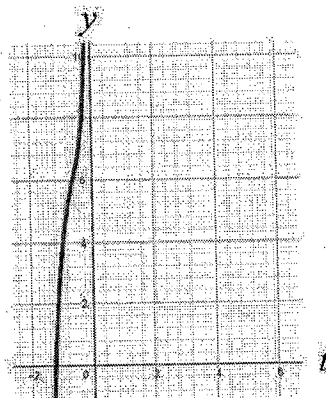 y
10
6
4
2
-2 0 2 4 6 t